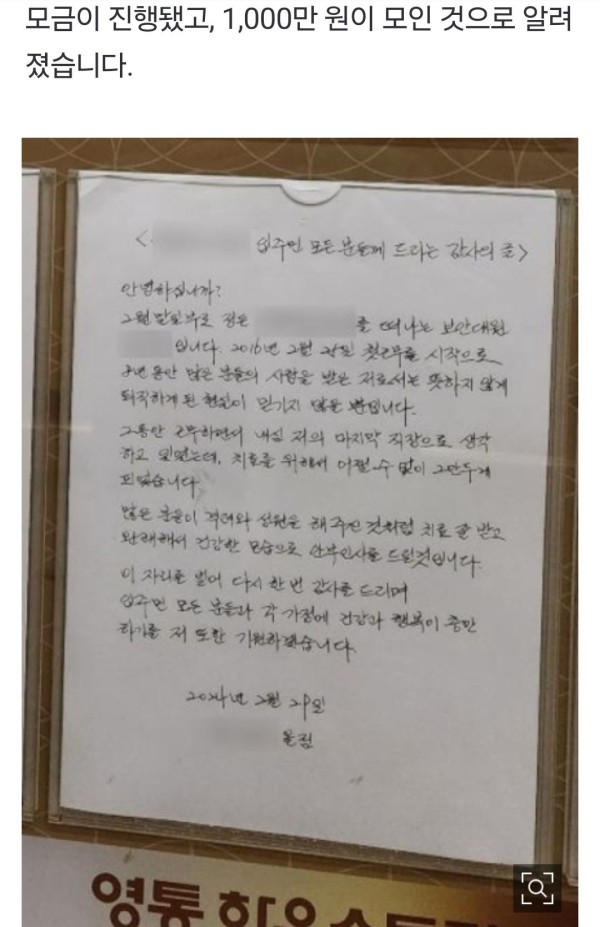 모금이 진행됐고, 1,000만 원이 모인 것으로 알려
졌습니다.
< 입주민 모든 분들께 드리는 감사의 글>
안녕하십니까?
2월 말일부로 정든 를 떠나는 보안대원
입니다. 2016년 2월 첫근무를 시작으로
8년 동안 많은 분들의 사랑을 받은 저로서는 뜻하지 않게
퇴직하게 된 현실이 믿기지 않을 뿐입니다.
그동안 근무하면서 내심 저의 마지막 직장으로 생각
하고 있었는데, 치료를 위해서 어쩔 수 없이 그만두게
되었습니다.
많은 분들이 격려와 성원을 해 주신 것처럼 치료 잘 받고
완쾌해서 건강한 모습으로 안부인사를 드릴것입니다.
이 자리를 빌어 다시 한 번 감사를 드리며
입주민 모든 분들과 각 가정에 건강과 행복이 충만
하기를 저 또한 기원하겠습니다.
2024년 2월 29일
올림
영통